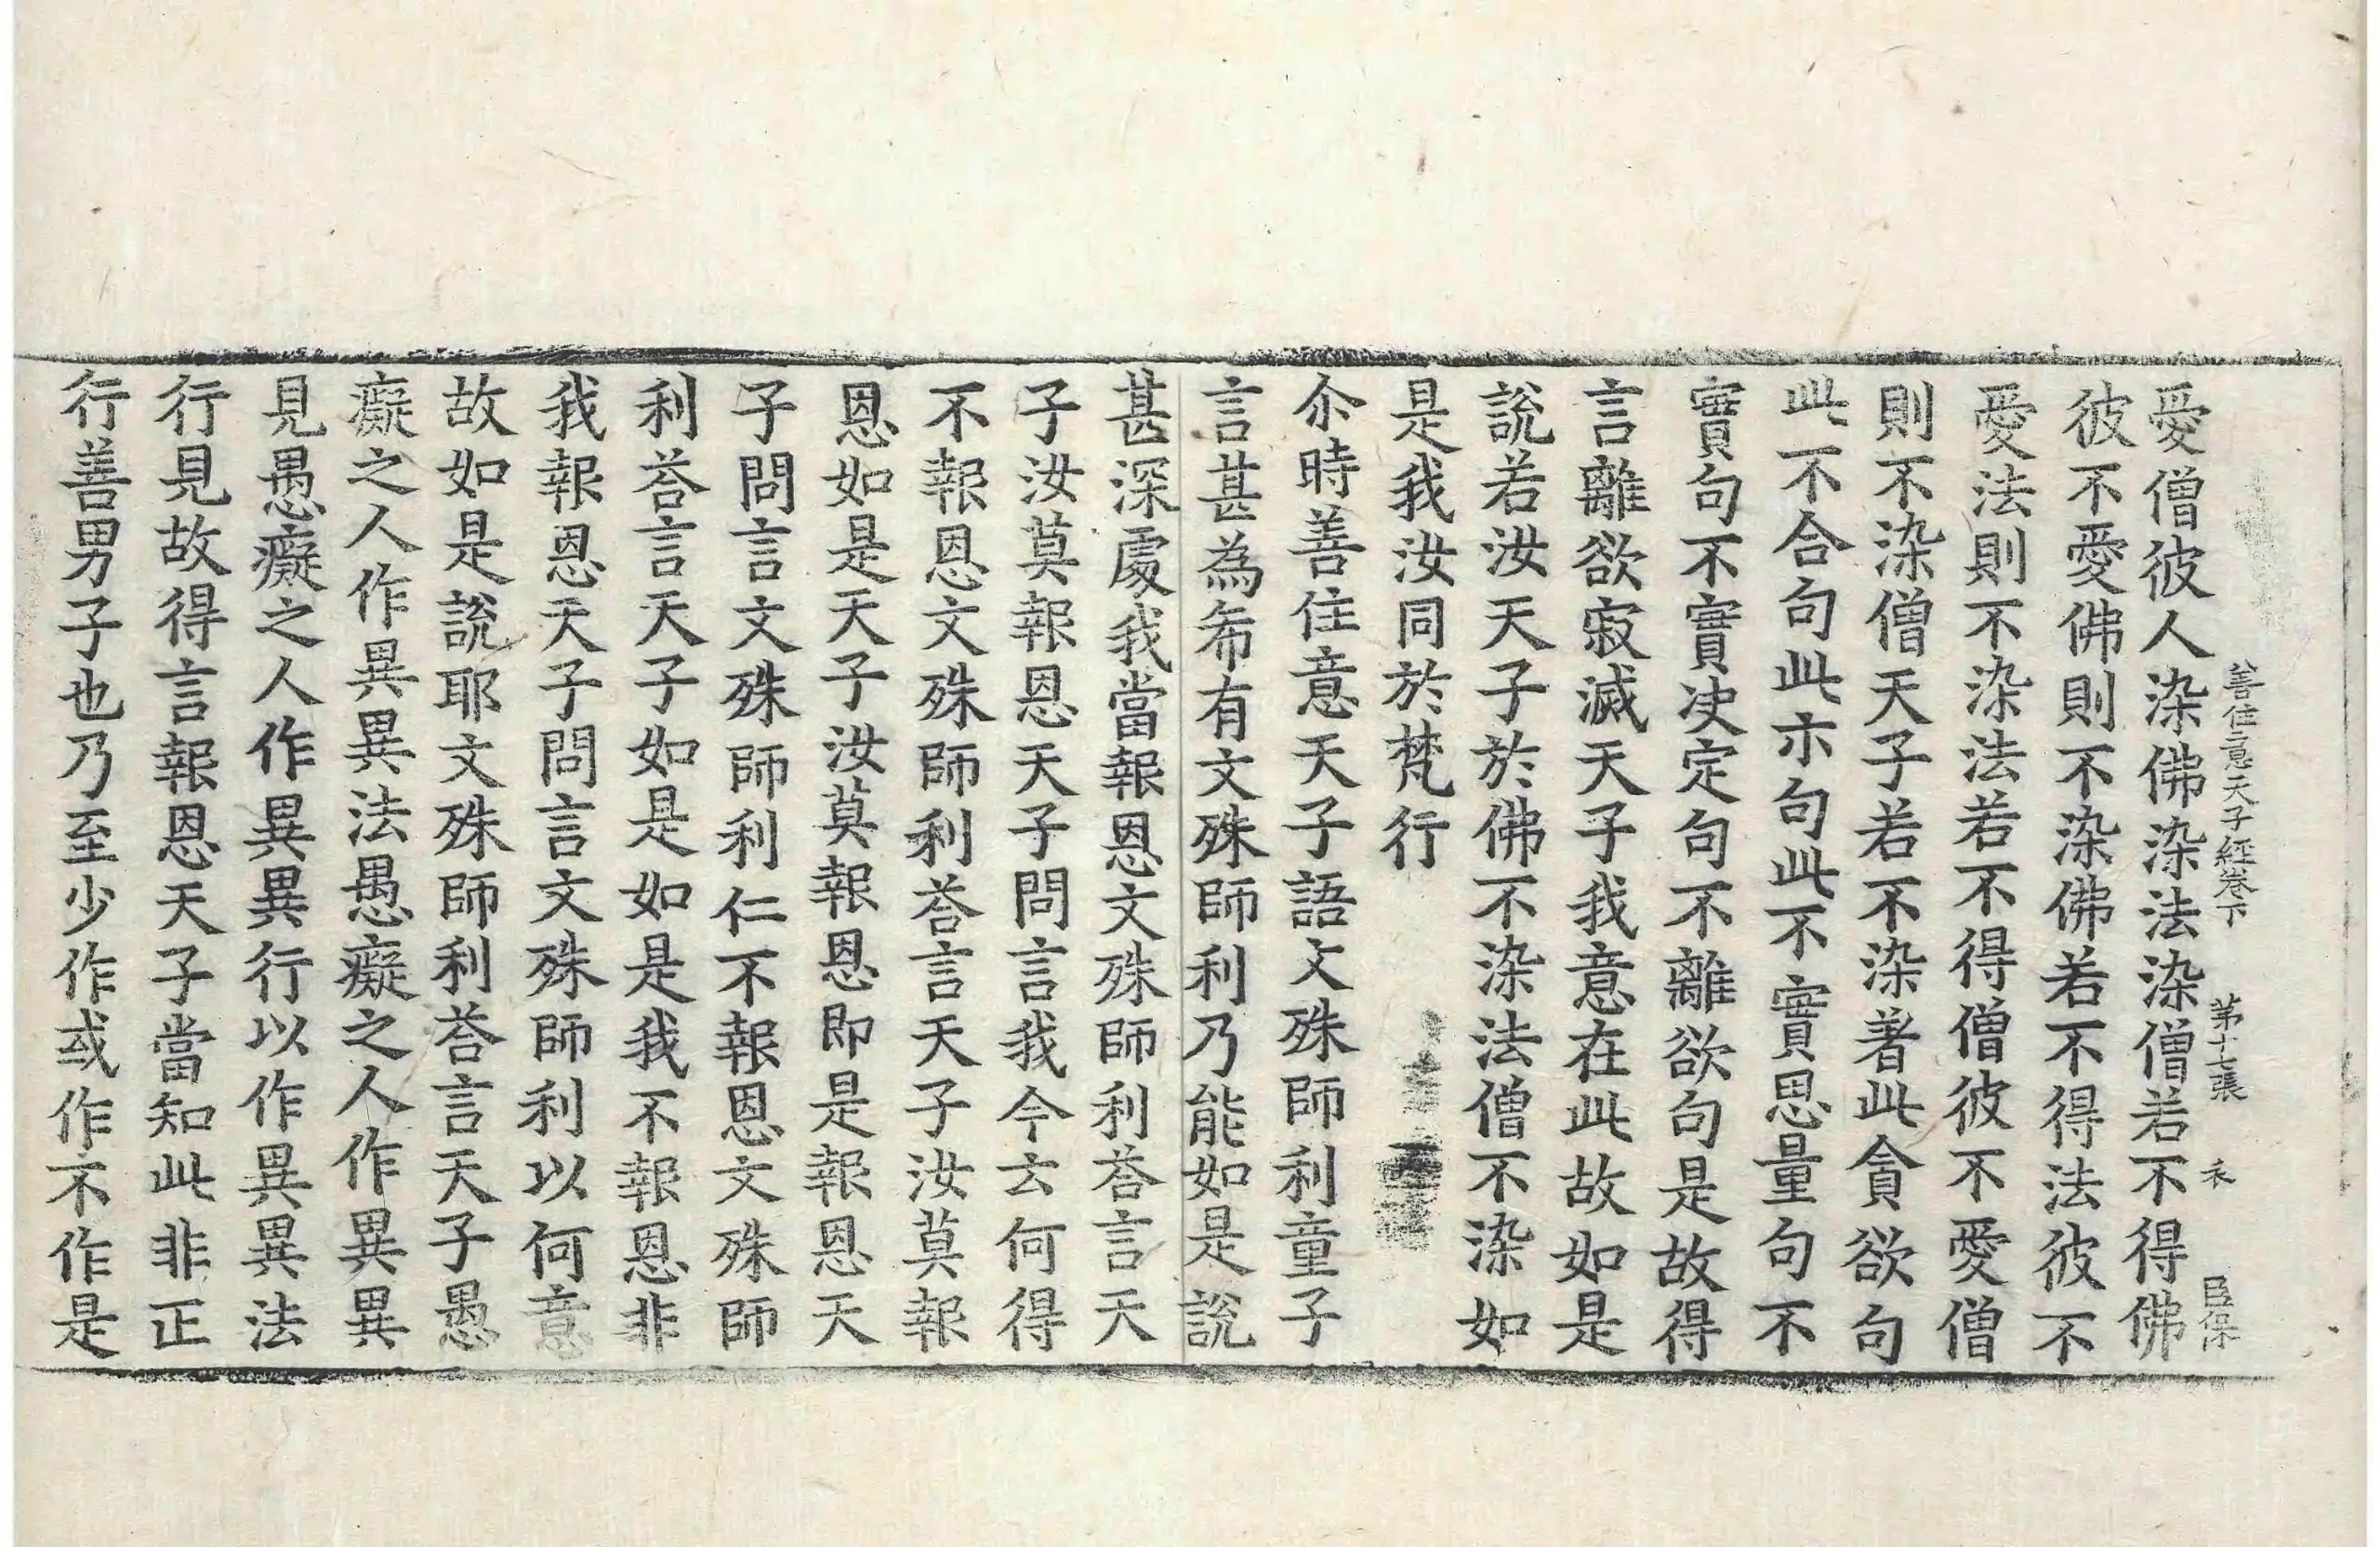 善住意天子經卷下　第十七張　衣　臣保
愛僧彼人染佛染法染僧若不得佛
彼不愛佛則不染佛若不得法彼不
愛法則不染法若不得僧彼不愛僧
則不染僧天子若不染著此貪欲句
此不合句此朩句此不實思量句不
實句不實决定句不離欲句是故得
言離欲寂滅天子我意在此故如是
說若汝天子於佛不染法僧不染如
是我汝同於梵行
尒時善住意天子語文殊師利童子
言甚為希有文殊師利乃能如是說
甚深處我當報恩文殊師利荅言天
子汝莫報恩天子問言我今云何得
不報恩文殊師利荅言天子汝莫報
恩如是天子汝莫報恩即是報恩天
子問言文殊師利仁不報恩文殊師
利荅言天子如是如是我不報恩非
我報恩天子問言文殊師利以何意
故如是說耶文殊師利荅言天子愚
癡之人作異異法愚癡之人作異異
見愚癡之人作異異行以作異異法
行見故得言報恩天子當知此非正
行善男子也乃至少作或作不作是